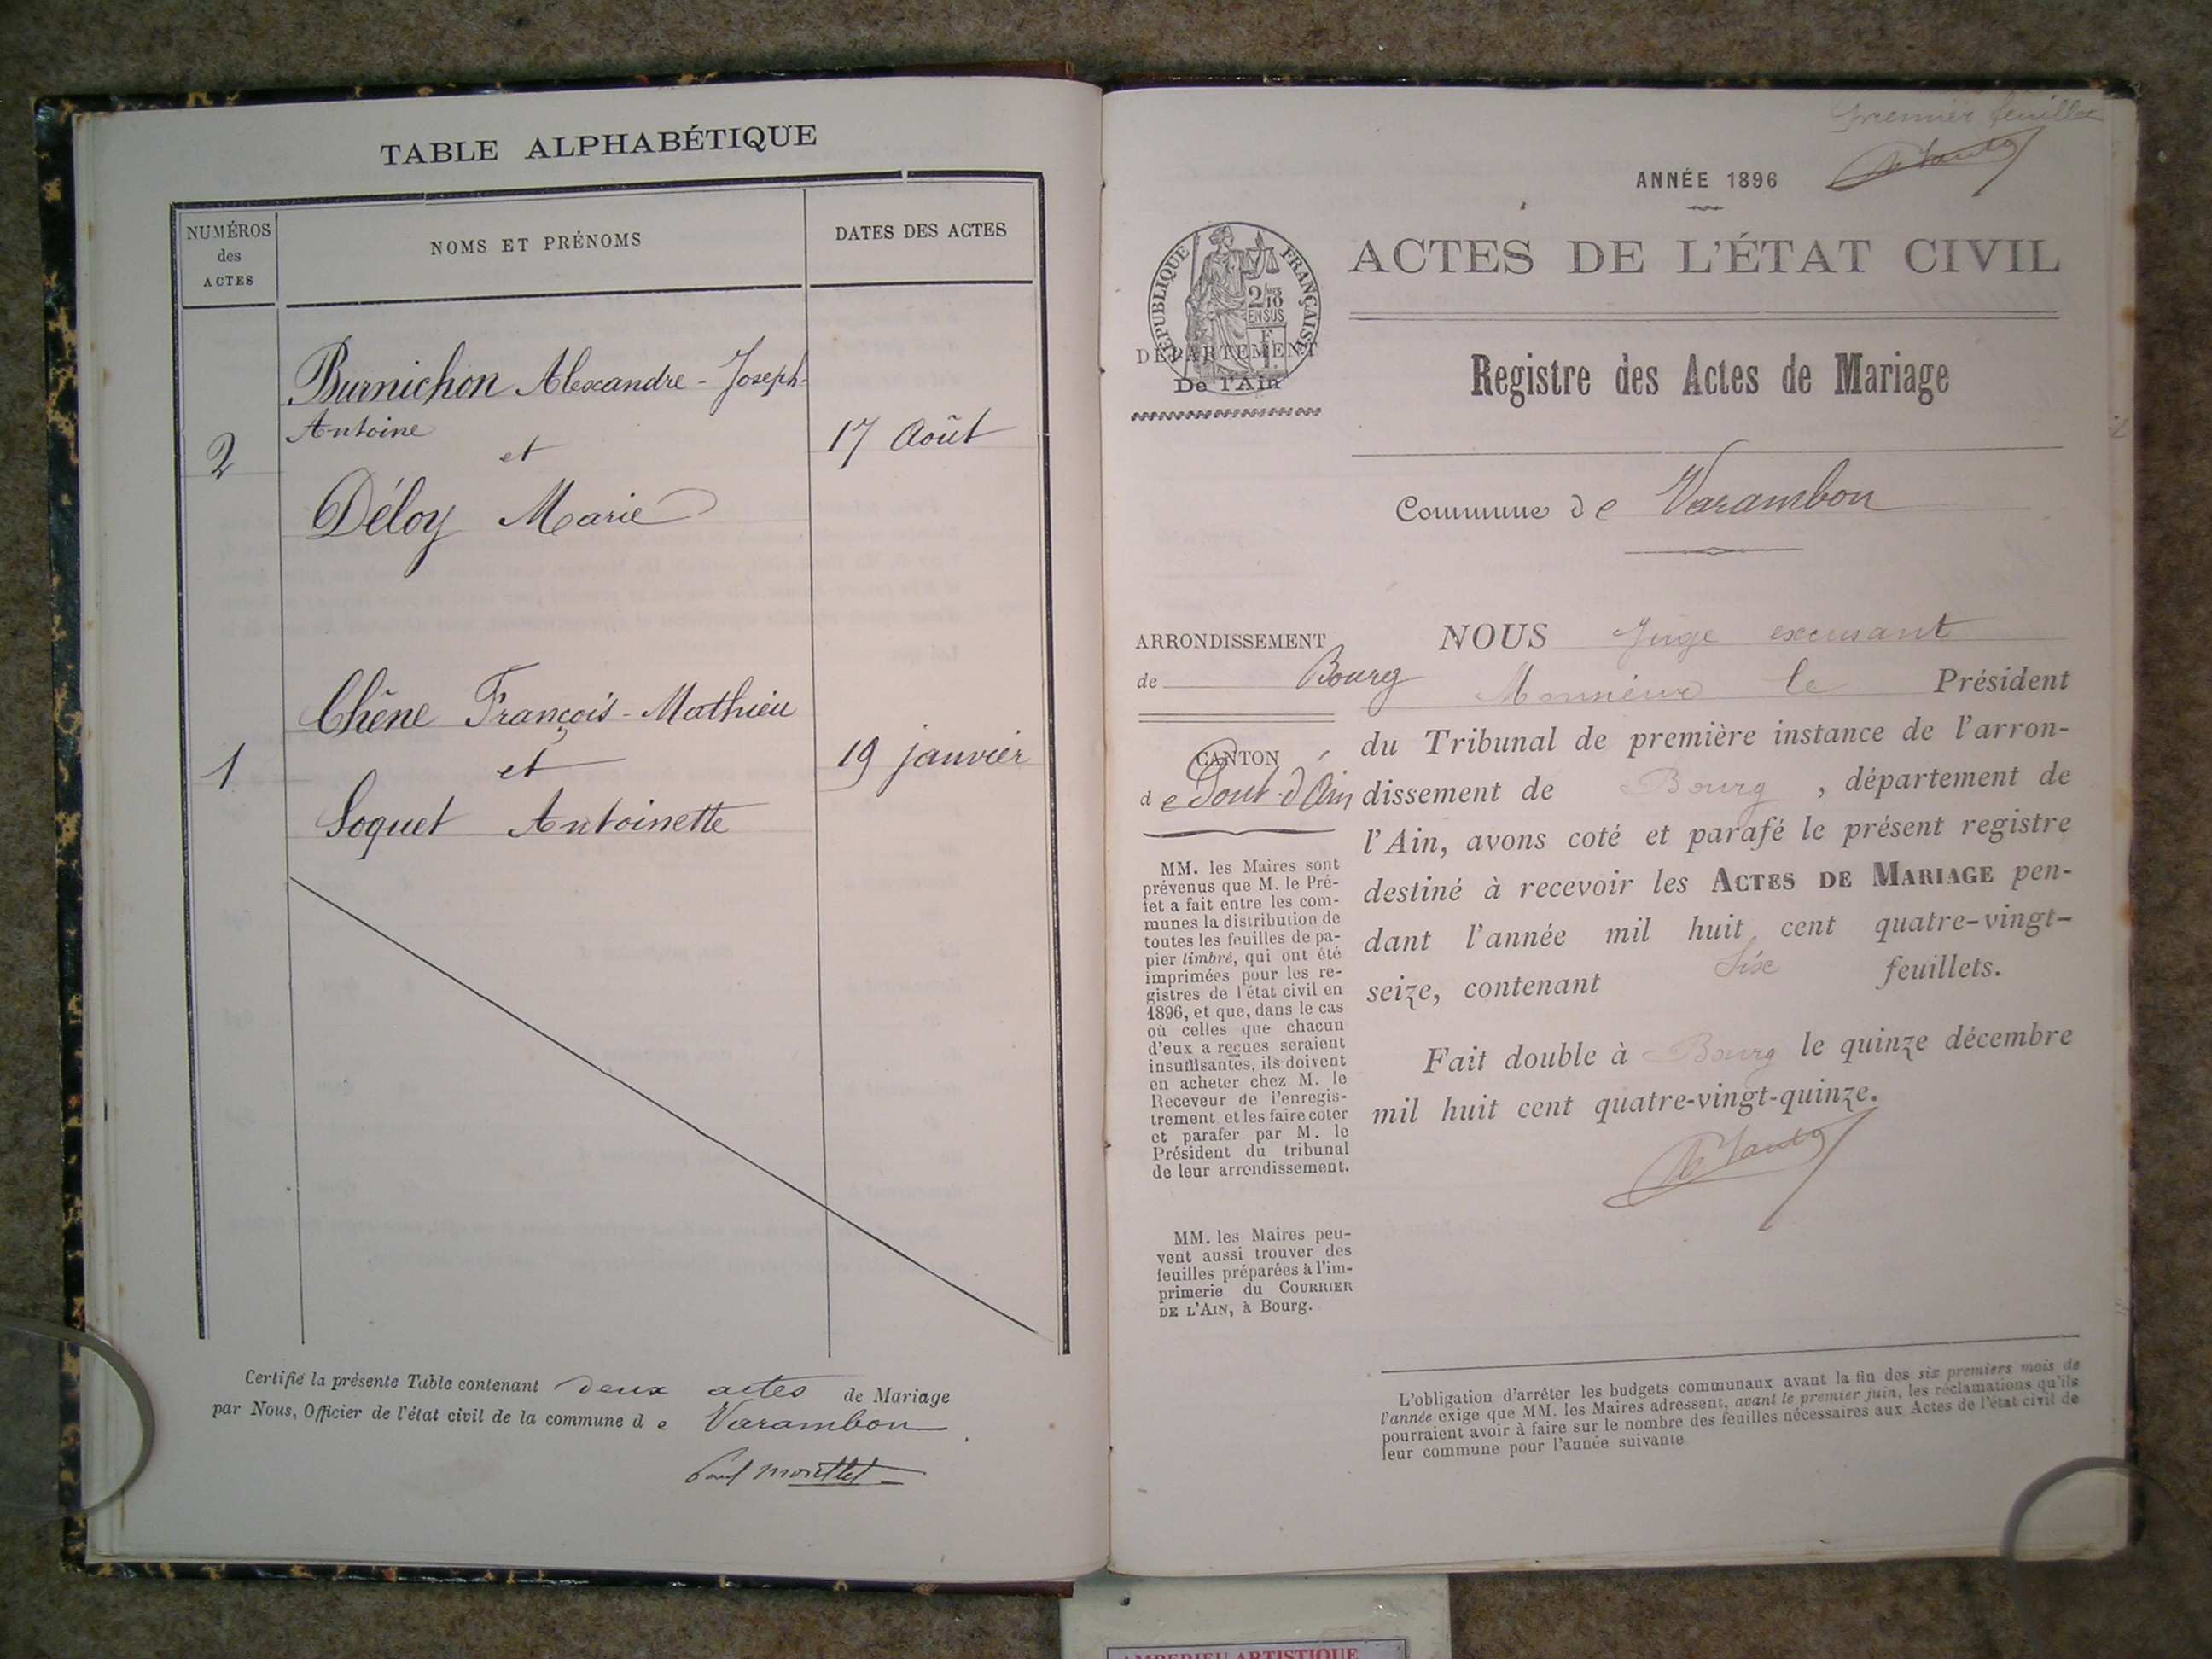 TABLE ALPHABÉTIQUE
NUMÉROS
des
ACTES
NOMS ET PRÉNOMS
DATES DES ACTES
Burnichon Alexandre-Joseph-
Antoine
et
2
17 Août
Déloy Marie
Chêne François-Mathieu
et
1
19 janvier
Soquet Antoinette
Certifié la présente Table contenant deux actes de Mariage
par Nous, Officier de l'état civil de la commune de Varambon
premier feuillet
ANNÉE 1896
RÉPUBLIQUE FRANÇAISE
2/10 MES
EN SUS
DÉPARTEMENT
De l'Ain
ACTES DE L'ÉTAT CIVIL
Registre des Actes de Mariage
Commune de Varambon
ARRONDISSEMENT
de Bourg
CANTON
de Pont-d'Ain
MM. les Maires sont
prévenus que M. le Pré-
fet a fait entre les com-
munes la distribution de
toutes les feuilles de pa-
pier timbré, qui ont été
imprimées pour les re-
gistres de l'état civil en
1896, et que, dans le cas
où celles que chacun
d'eux a reçues seraient
insuffisantes, ils doivent
en acheter chez M. le
Receveur de l'enregis-
trement et les faire coter
et parafer par M. le
Président du tribunal
de leur arrondissement.
MM. les Maires peu-
vent aussi trouver des
feuilles préparées à l'im-
primerie du COURRIER
DE L'AIN, à Bourg.
NOUS Juge excusant
Monsieur le Président
du Tribunal de première instance de l'arron-
dissement de Bourg, département de
l'Ain, avons coté et parafé le présent registre
destiné à recevoir les ACTES DE MARIAGE pen-
dant l'année mil huit cent quatre-vingt-
seize, contenant six feuillets.
Fait double à Bourg le quinze décembre
mil huit cent quatre-vingt-quinze.
L'obligation d'arrêter les budgets communaux avant la fin des six premiers mois de
l'année exige que MM. les Maires adressent, avant le premier juin, les réclamations qu'ils
pourraient avoir à faire sur le nombre des feuilles nécessaires aux Actes de l'état civil de
leur commune pour l'année suivante